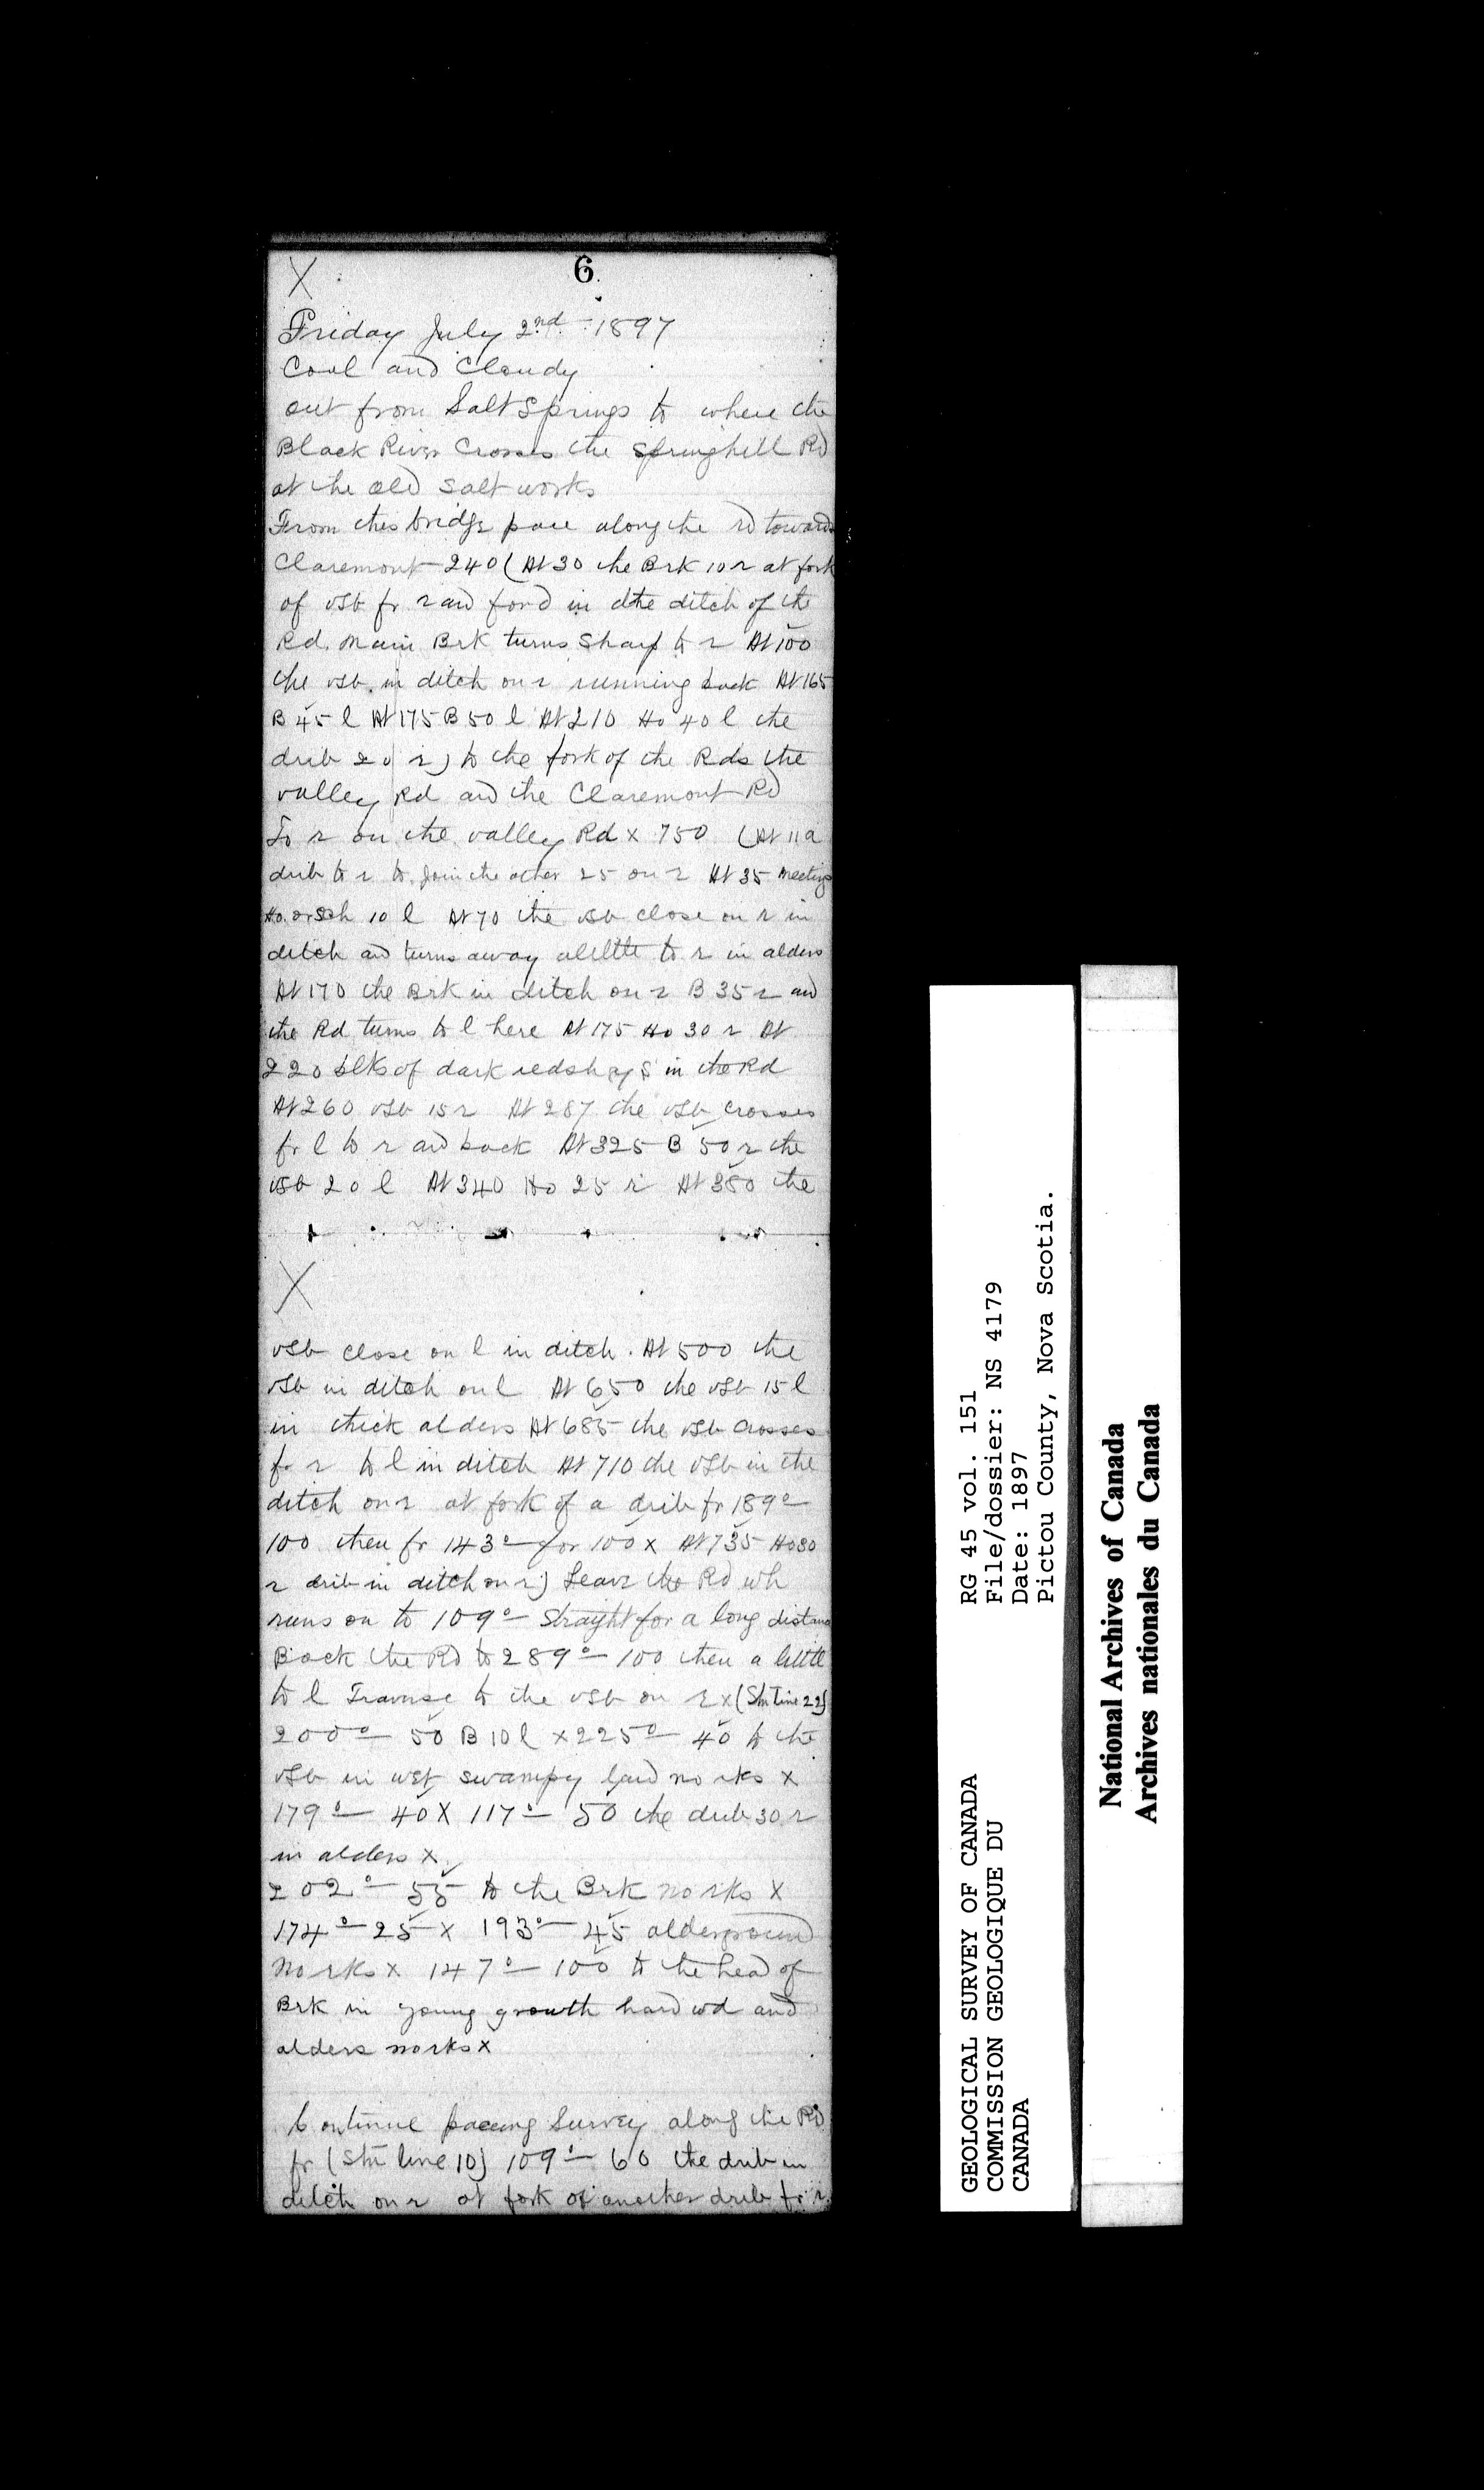 X
6
Friday July 2nd 1897
Cool and Cloudy
out from Salt Springs to where the
Black River Crosses the Springhill Rd
at the old Salt works
From this bridge pace along the rd towards
Claremont 240 (At 30 the Brk 10 r at fork
of vsb fr r and ford in the ditch of the
Rd. Main Brk turns Sharp to r At 100
the vsb. in ditch on r running back At 165
B 45 l At 175 B 50 l At 210 Ho 40 l the
drib 20 r) to the fork of the Rds the
valley Rd and the Claremont Rd
To r on the valley Rd x 750 (At 11 a
drib to r to join the other 25 on r At 35 Meeting
Ho. or Sch 10 l At 70 the vsb close on r in
ditch and turns away alittle to r in alders
At 170 the Brk in ditch on r B 35 r and
the Rd turns to l here At 175 Ho 30 r At
220 blks of dark red in the Rd
At 260 vsb 15 r At 287 the vsb crosses
fr l to r and back At 325 B 50 r the
vsb 20 l At 340 Ho 25 r At 380 the
X
vsb close on l in ditch. At 500 the
vsb in ditch on l At 650 the vsb 15 l
in thick alders At 685 the vsb crosses
fr r to l in ditch At 710 the vsb in the
ditch on r at fork of a drib fr 189°—
100 then fr 143°— for 100 x At 735 Ho 30
r drib in ditch on r) Leave the Rd wh
runs on to 109°— Straight for a long distance
Back the Rd to 289°— 100 then a little
to l Traverse to the vsb on r x (Stn line 22)
200°— 50 B 10 l x 225°— 40 to the
vsb in wet swampy land no rks x
179°— 40 X 117°— 50 the drib 30 r
in alders x
202°— 55 to the Brk no rks X
174°— 25 x 193°— 45 alderground
No rks x 147°— 100 to the head of
Brk in young growth hard wd and
alders no rks x
Continue pacing Survey along the Rd
fr (Stn line 10) 109°— 60 the drib in
ditch on r at fork of another drib fr r
GEOLOGICAL SURVEY OF CANADA
COMMISSION GEOLOGIQUE DU
CANADA
RG 45 vol. 151
File/dossier: NS 4179
Date: 1897
Pictou County, Nova Scotia.
National Archives of Canada
Archives nationales du Canada